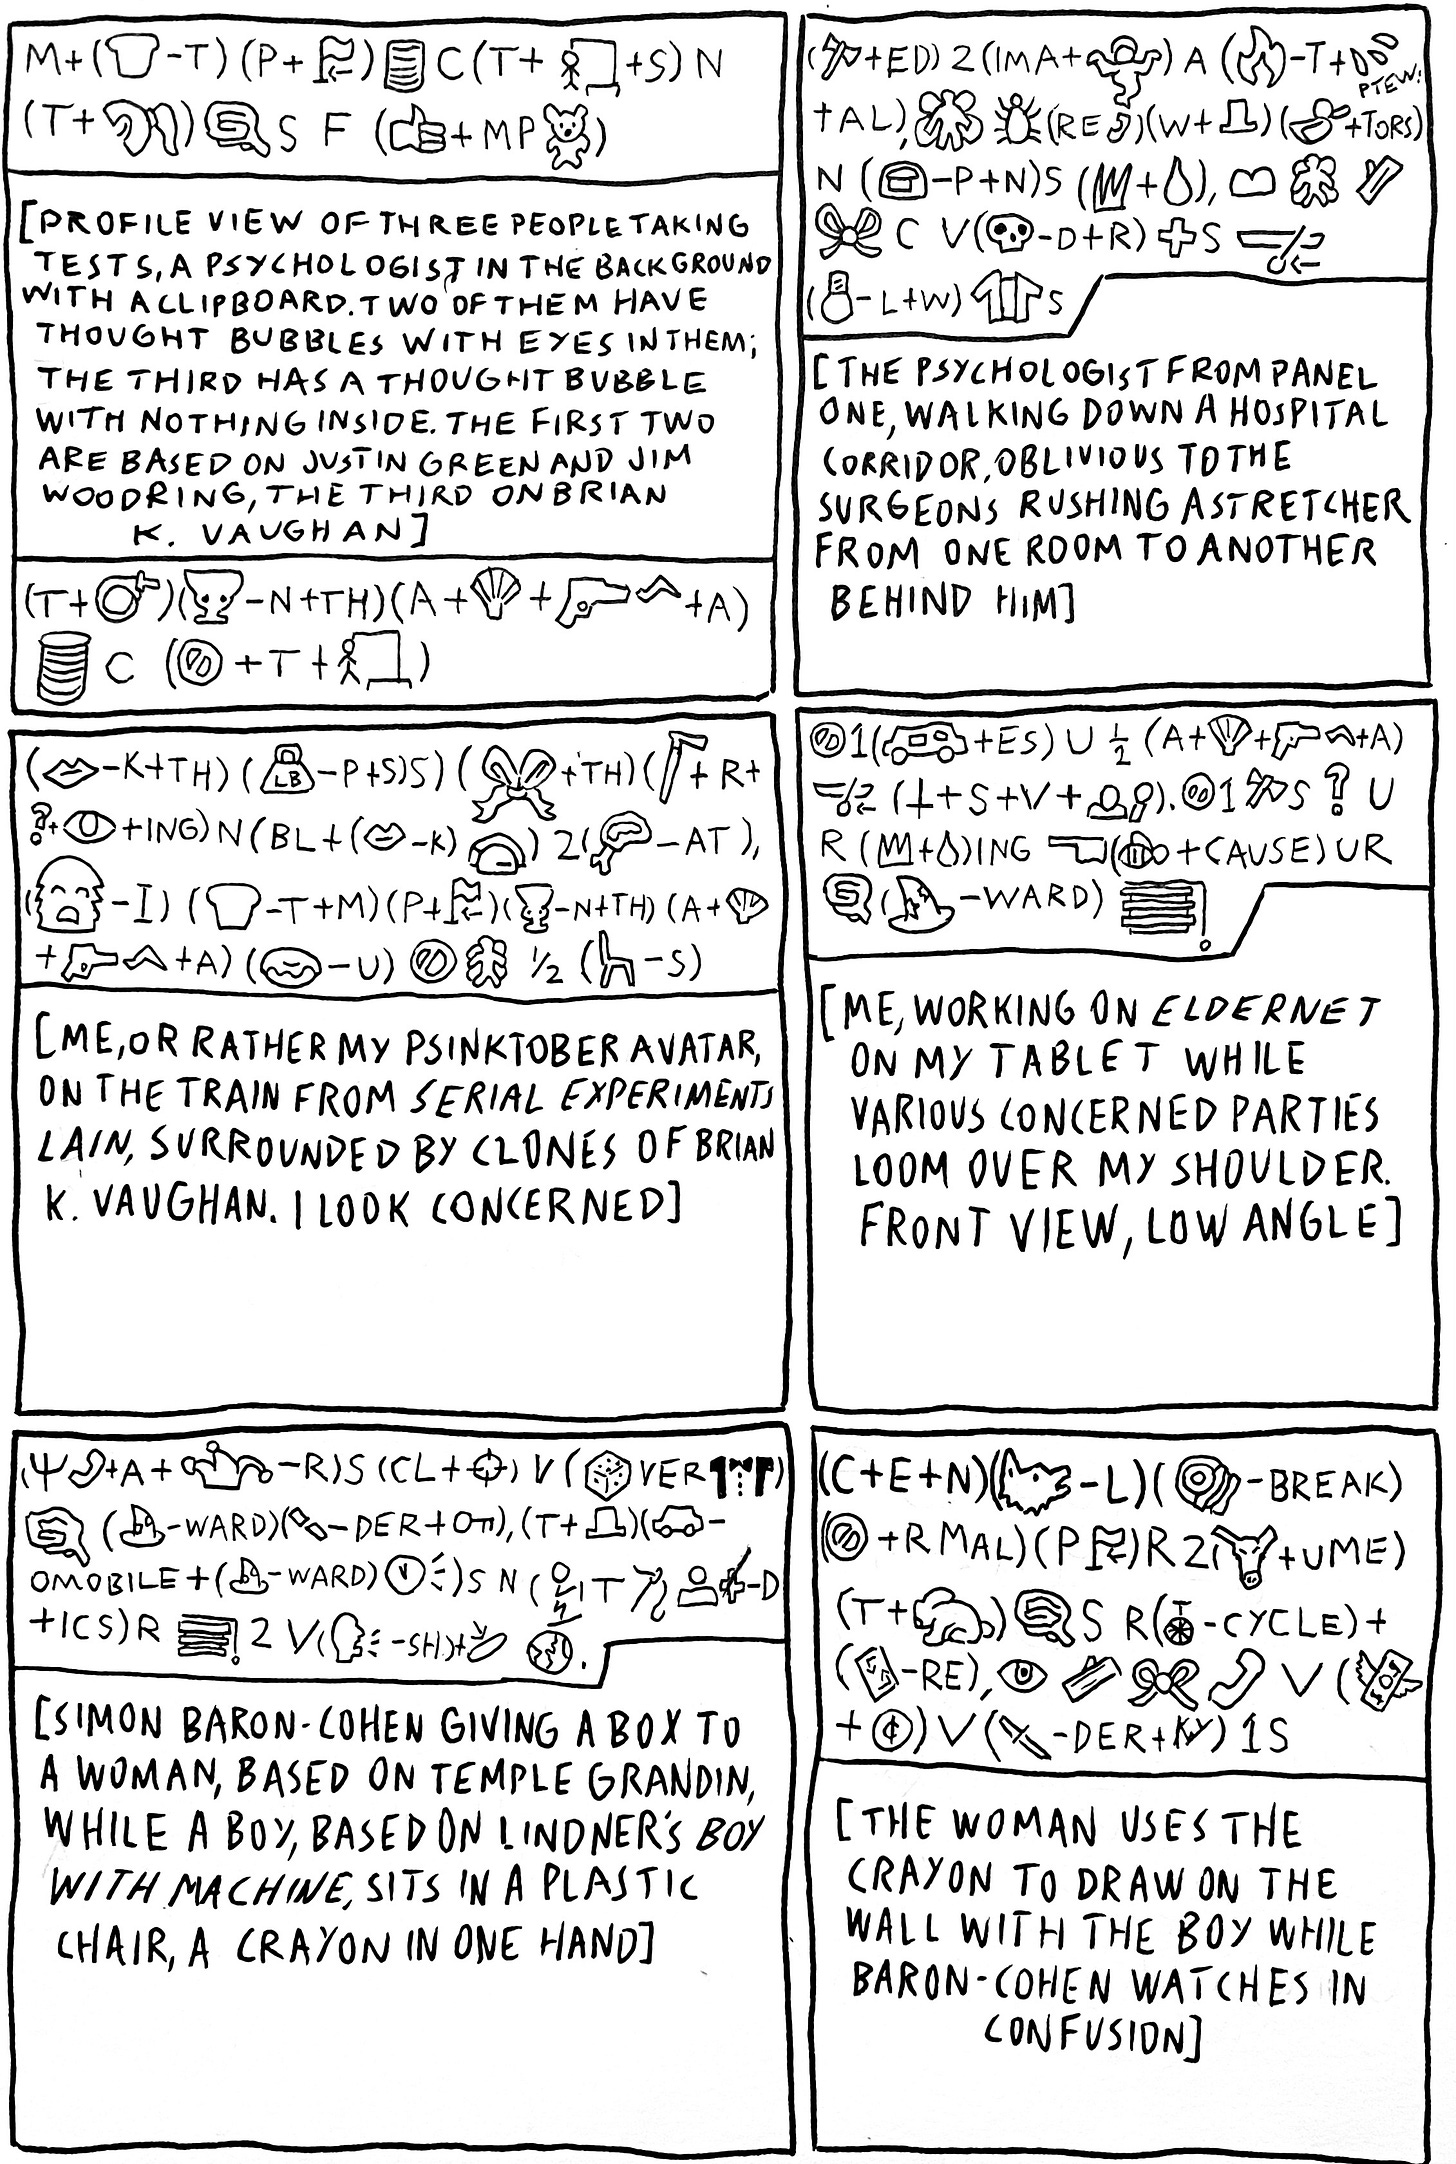 M+( -T) (P+ ) C(T+ +S) N
(T+ ) S F ( +MP )
[PROFILE VIEW OF THREE PEOPLE TAKING
TESTS, A PSYCHOLOGIST IN THE BACKGROUND
WITH A CLIPBOARD. TWO OF THEM HAVE
THOUGHT BUBBLES WITH EYES IN THEM;
THE THIRD HAS A THOUGHT BUBBLE
WITH NOTHING INSIDE. THE FIRST TWO
ARE BASED ON JUSTIN GREEN AND JIM
WOODRING, THE THIRD ON BRIAN
K. VAUGHAN]
(T+ )( -N+TH)(A+ + +A)
C ( +T+ )
( +ED) 2 (IMA+ ) A ( -T+ PTEW!
+AL), (RE )(W+ )( +TORS)
N ( -P+N)S ( + ),
C V( -D+R) S
( -L+W) S
[THE PSYCHOLOGIST FROM PANEL
ONE, WALKING DOWN A HOSPITAL
CORRIDOR, OBLIVIOUS TO THE
SURGEONS RUSHING A STRETCHER
FROM ONE ROOM TO ANOTHER
BEHIND HIM]
( -K+TH) ( LB -P+S)S) ( +TH) ( +R+
?+ +ING) N (BL+( -K) ) 2( -AT),
( -I) ( -T+M) (P+ )( -N+TH) (A+
+ +A) ( -U) 1/2 ( -S)
[ME, OR RATHER MY PSINKTOBER AVATAR,
ON THE TRAIN FROM SERIAL EXPERIMENTS
LAIN, SURROUNDED BY CLONES OF BRIAN
K. VAUGHAN. I LOOK CONCERNED]
1( +ES) U 1/2 (A+ + +A)
( +S+V+ ). 1 S ? U
R ( + )ING ( +CAUSE) UR
( -WARD)
[ME, WORKING ON ELDERNET
ON MY TABLET WHILE
VARIOUS CONCERNED PARTIES
LOOM OVER MY SHOULDER.
FRONT VIEW, LOW ANGLE]
(Ψ +A+ -R)S (CL+ ) V ( VER )
( -WARD)( -DER+ ), (T+ )( -
OMOBILE+( -WARD) )S N ( T -D
+ICS) R 2 V( -SH)+ .
[SIMON BARON-COHEN GIVING A BOX TO
A WOMAN, BASED ON TEMPLE GRANDIN,
WHILE A BOY, BASED ON LINDNER'S BOY
WITH MACHINE, SITS IN A PLASTIC
CHAIR, A CRAYON IN ONE HAND]
(C+E+N)( -L)( -BREAK)
( +RMAL) (P )R 2( +UME)
(T+ ) S R( -CYCLE)+
( -RE), V (
+ ¢) V ( -DER+KY) 1S
[THE WOMAN USES THE
CRAYON TO DRAW ON THE
WALL WITH THE BOY WHILE
BARON-COHEN WATCHES IN
CONFUSION]